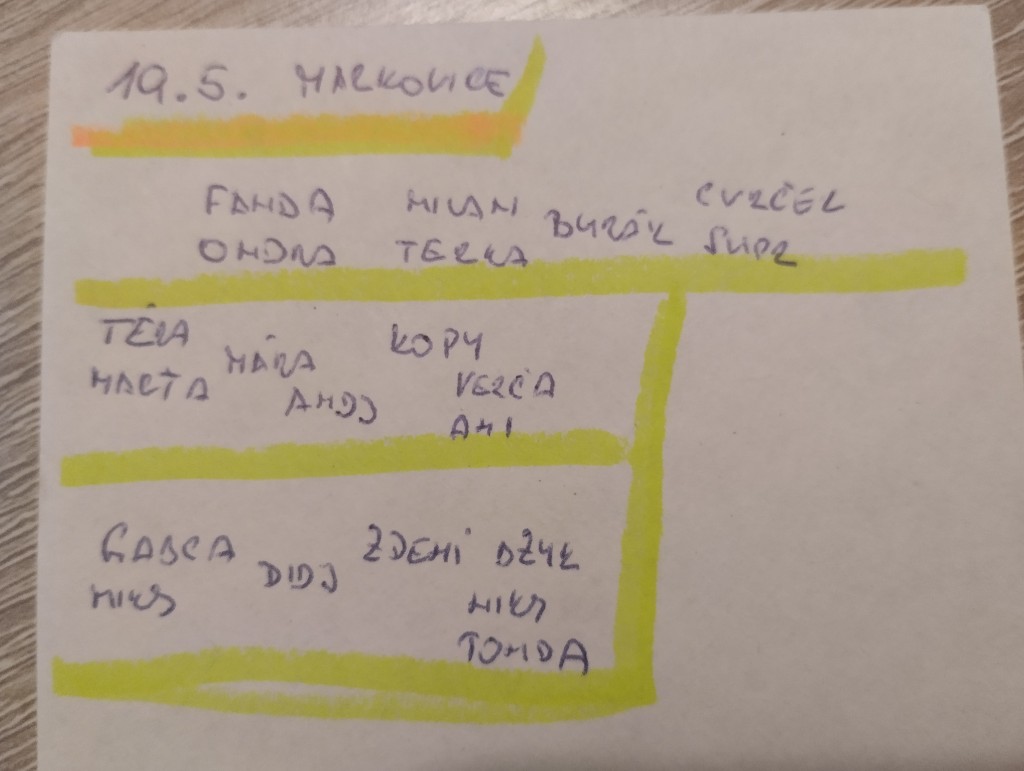 19.5. MARKOVICE
FANDA MILAN BUZÁK CVRČEK
ONDRA TERKA ŠUPR
TÉRA MÁRA KOPY
MARŤA ANDJ VERČA
ANI
GABCA DIDJ ZDENI DŽUK
MIKY MIKY
TONDA